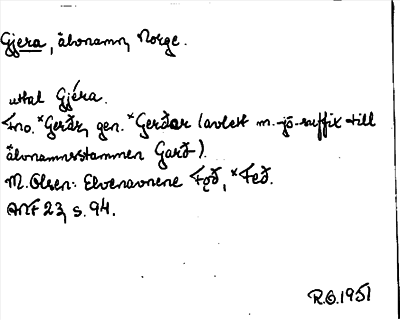 Gjera, älvnamn, Norge.
uttal Gjéra.
Fno. *Gerðr, gen. *Gerðar (avlett m. -jō-suffix till
älvnamnsstammen Garð).
M. Olsen: Elvenavnene Fǫð, *Feð.
ANF 23, s. 94.
R.O. 1951